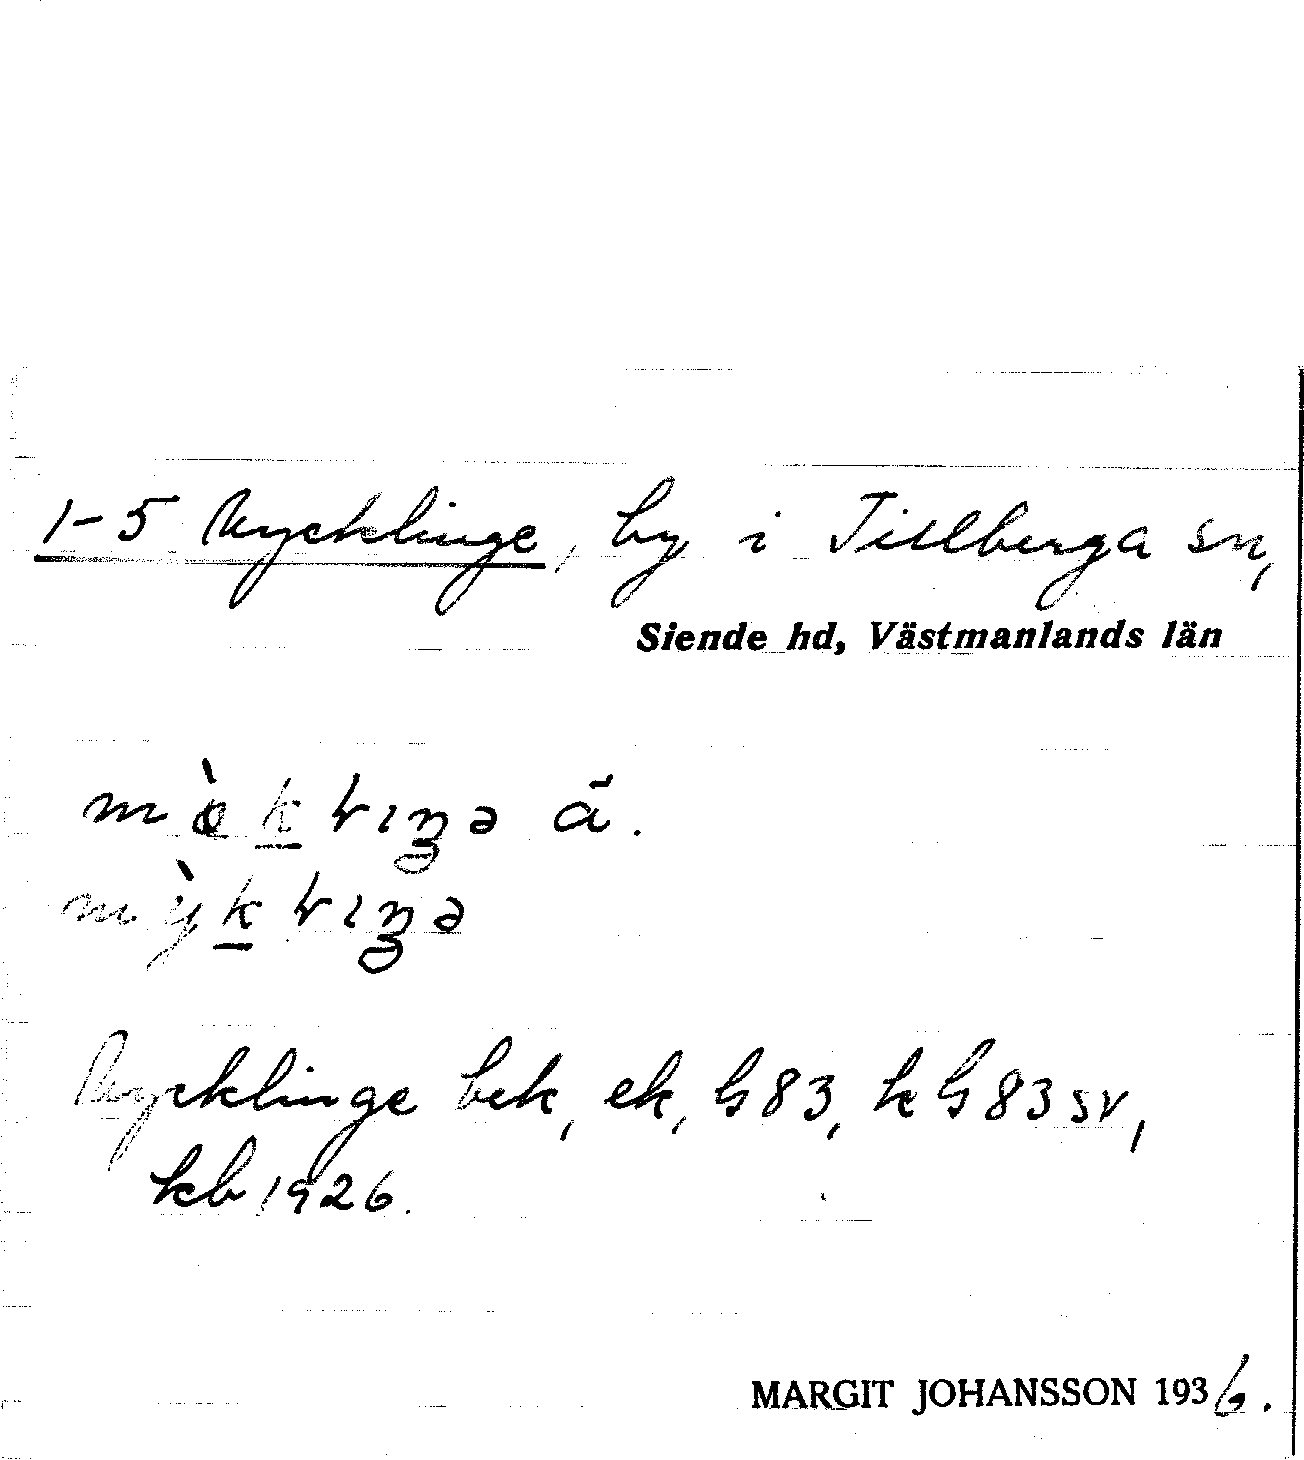 1-5 Mycklinge, by i Tillberga sn,
Siende hd, Västmanlands län
Mycklinge bek, ek, G83, k G83 sv,
kb 1926.
MARGIT JOHANSSON 1936.